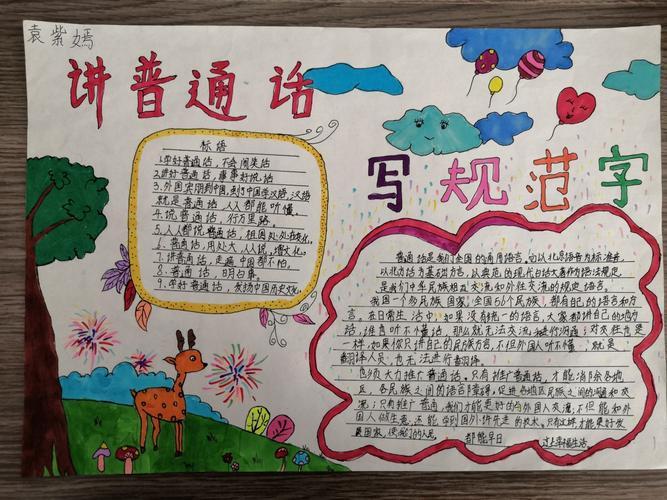 袁紫嫣
讲普通话
写规范字
标语
1.学好普通话,不会闹笑话
2.讲好普通话,事事好说话
3.外国宾朋到中国,来到中国学汉语,汉语
就是普通话,人人都能听懂。
4.说普通话,行万里路。
5.人人都说普通话,祖国处处
6.普通话,用处大,人人说,
7.讲普通话,走遍中国都不怕。
8.普通话,明古事。
9.学好普通话,发扬中国历史文化。
普通话是我们全国的通用语言,它以北京语音为标准音,
以北方话为基础方言,以典范的现代白话文著作为语法规定,
是我们中华民族相互交流和外往交流的规定语言。
我国一个多民族国家,全国56个民族,都有自己的语言和方
言,在日常生活中,如果没有统一的语言,大家都讲自己的地方
话,谁也听不懂话,那么就无法交流
一样,如果你只讲自己的民族方言,不但外国人听不懂,就是
翻译人员,也无法进行翻译。
也须大力推广普通话。只有推广普通话,才能消除各地
区,各民族之间的语言障碍,促进各地区民族之间的沟通和交
流;只有推广普通,我们才能更好的与外国人交流,不但能和外国
人做生意,还能学到国外
展国家,使我们的人民 都能早日 过上幸福生活